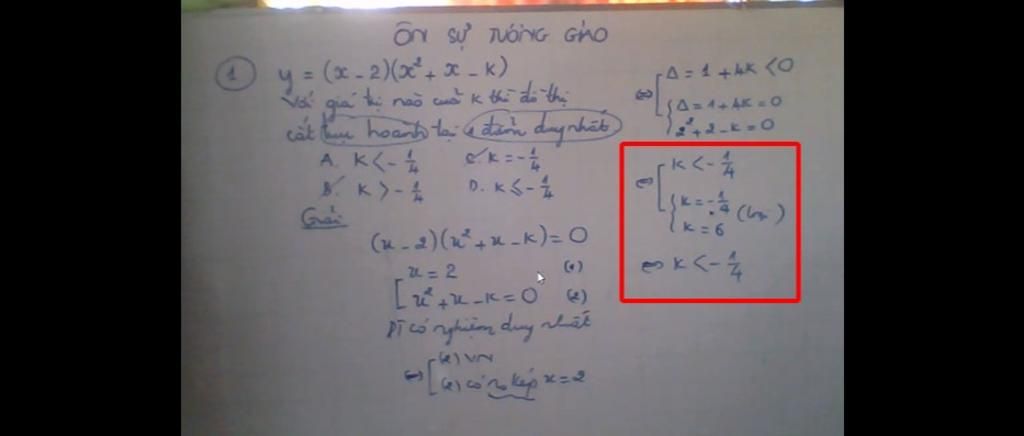 ÔN SỰ TƯƠNG GIAO
① y = (x - 2)(x² + x - k)
Với giá trị nào của k thì đồ thị
cắt trục hoành tại 1 điểm duy nhất
A. k < -1/4 C. k = -1/4
B. k > -1/4 D. k ≤ -1/4
Giải
(x - 2)(x² + x - k) = 0
[ x = 2 (1)
[ x² + x - k = 0 (2)
PT có nghiệm duy nhất
⇔ [ (2) VN
[ (2) có no kép x = 2
⇔ [ Δ = 1 + 4k < 0
{ Δ = 1 + 4k = 0
{ 2² + 2 - k = 0
⇔ [ k < -1/4
{ k = -1/4
{ k = 6
⇔ k < -1/4